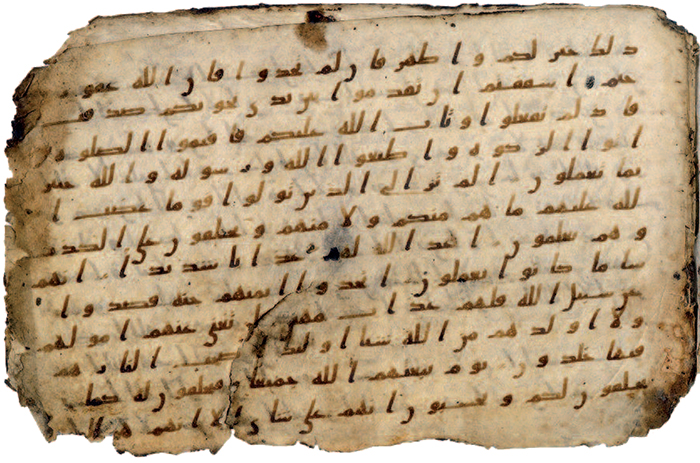 ذلك خير لكم و اطهر فان لم تجدوا فان الله غفور
رحيم ااشفقتم ان تقدموا بين يدى نجويكم صدقت
فاذ لم تفعلوا و تاب الله عليكم فاقيموا الصلوة و
اتوا الزكوة و اطيعوا الله و رسوله و الله خبير
بما تعملون الم تر الى الذين تولوا قوما غضب ا
لله عليهم ما هم منكم و لا منهم و يحلفون على الكذب
و هم يعلمون اعد الله لهم عذابا شديدا انهم
سا ما كانوا يعملون اتخذوا ايمنهم جنة فصدوا
عن سبيل الله فلهم عذاب مهين لن تغنى عنهم امولهم
و لا اولدهم من الله شيا اوليك اصحب النار هم
فيها خلدون يوم يبعثهم الله جميعا فيحلفون له كما
يحلفون لكم و يحسبون انهم على شاى الا انهم هم ا